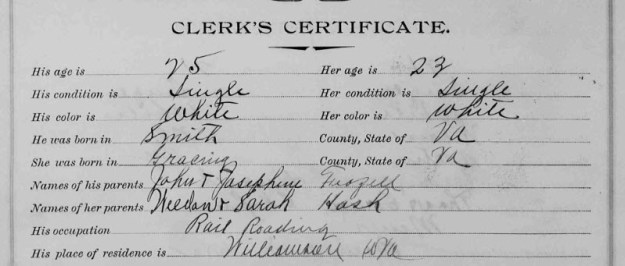 CLERK'S CERTIFICATE.
His age is 25 Her age is 23
His condition is Single Her condition is Single
His color is White Her color is White
He was born in Smith County, State of Va
She was born in County, State of Va
Names of his parents John & Josephine
Names of her parents & Sarah Hash
His occupation Rail Roading
His place of residence is WVa